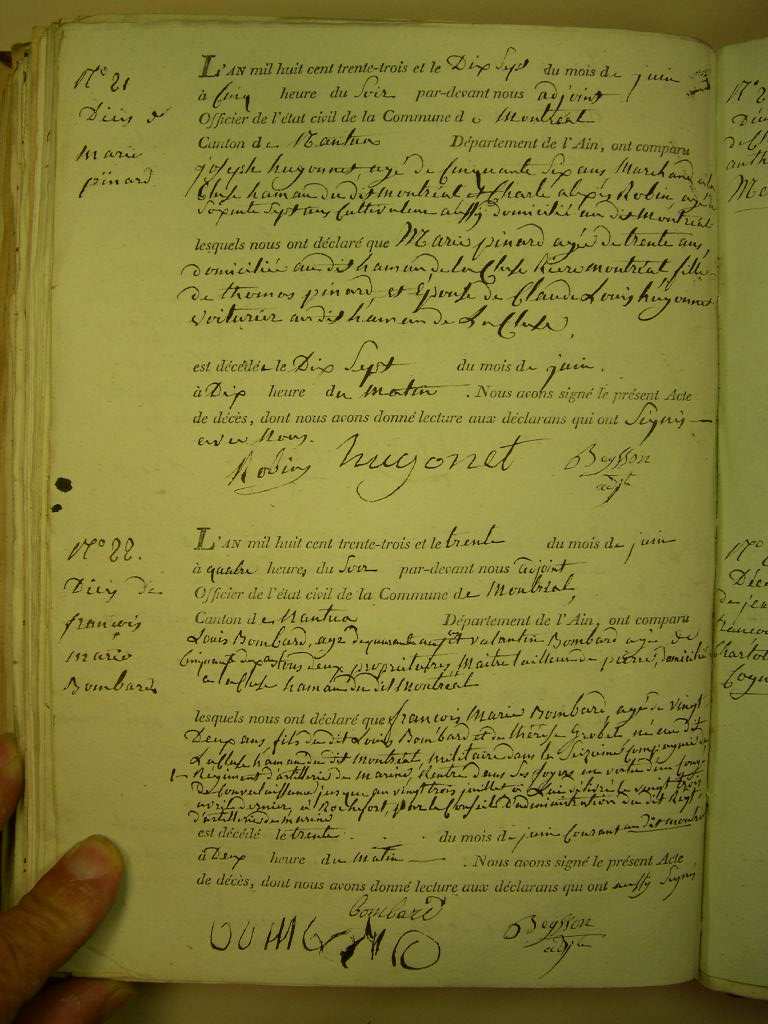 N.° 21
Décès de
Marie
pinard
L'AN mil huit cent trente-trois et le Dix Sept du mois de juin
à Cinq heure du Soir par-devant nous adjoint
Officier de l'état civil de la Commune de Montréal
Canton de Nantua Département de l'Ain, ont comparu
joseph hugonnet, agé de Cinquante Six ans Marchand
Cluse hamau du dit Montréal et Charle alexis Robin agé
Soixente Sept ans Cultivateur aussy domicilié au dit Montréal
lesquels nous ont déclaré que Marie pinard agée de trente ans,
domiciliée au dit hamau de la Cluse Riere montréal fille
de thomas pinard, et Epouse de Claude Louis hugonnet
voiturier au dit hamau de La Cluse,
est décédée le Dix Sept du mois de juin.
à Dix heure du matin. Nous avons signé le présent Acte
de décès, dont nous avons donné lecture aux déclarans qui ont Signés
avec Nous.
Robin hugonet Beysson
adjt
N.° 22.
Décès de
françois
Marie
Bombard
L'AN mil huit cent trente-trois et le trente du mois de juin
à quatre heures du Soir par-devant nous adjoint
Officier de l'état civil de la Commune de Montréal,
Canton de Nantua Département de l'Ain, ont comparu
Louis Bombard, agé de quarante et valentin Bombard agé de
Cinquante tous deux propriétaires, Maitre tailleur de pierre, domicilié
a la Cluse hamau du dit Montréal
lesquels nous ont déclaré que françois Marie Bombard agé de vingt
Deux ans fils du dit Louis Bombard et de thérèse Grobet, né au dit
La Cluse hamau du dit Montréal, militaire dans la Seizième Compagnie du
1er Régiment d'artillerie de Marine, Rentré dans Ses foyers en vertu d'un Congé
de Convalaissance jusque au vingt trois juillet à Lui délivré le vingt trois
avril dernier, à Rochefort, par le Conseil d'administration du dit Régt
d'artillerie de marine
est décédé le trente du mois de juin Courant au dit montréal
à Deux heure du Matin. Nous avons signé le présent Acte
de décès, dont nous avons donné lecture aux déclarans qui ont aussy Signés
bombard
Beysson
adjt